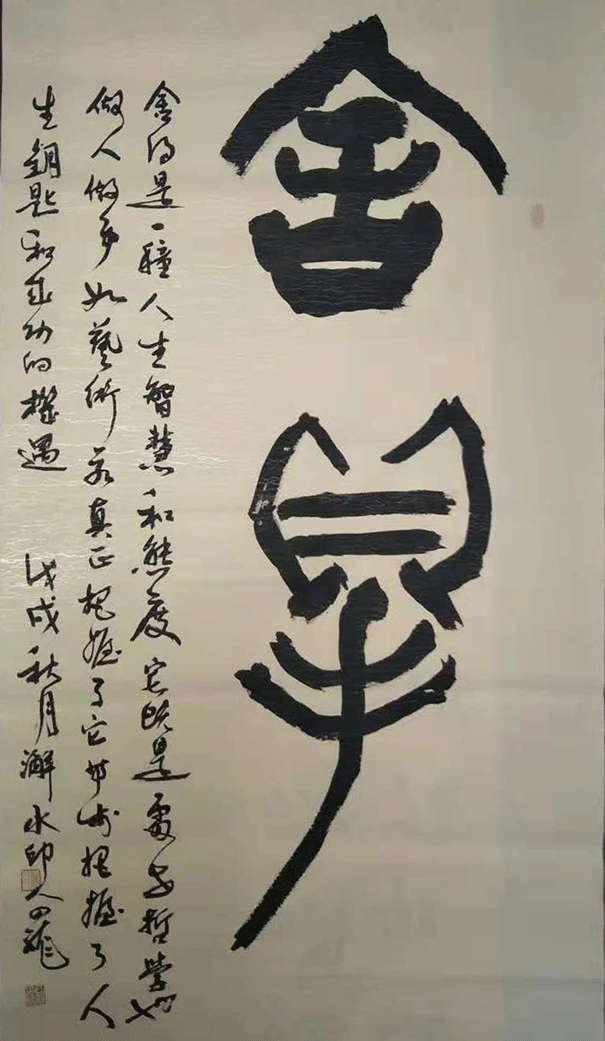 舍得
舍得是一種人生智慧和態度它既是處世哲學也
做人做事的藝術若真正把握了它等於把握了人
生鑰匙和成功的機遇
戊戌秋月澥水印人